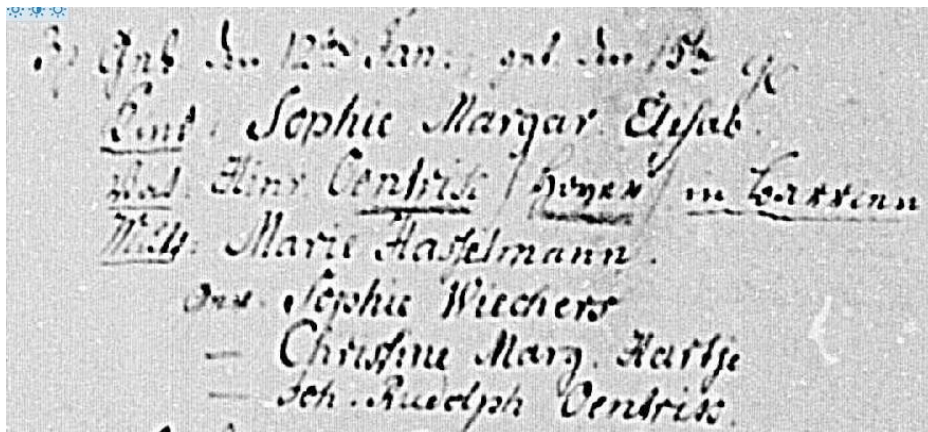 3) Geb. den 12ten Jan., get. den 15ten
Kind: Sophie Margar. Elisab.
Vat. Hinr. Oentrich / Hoyer / in Barrien
Mutt. Marie Hasselmann.
Gev. Sophie Wiechers
— Christine Marg. Hartje
— Joh. Rudolph Oentrich.